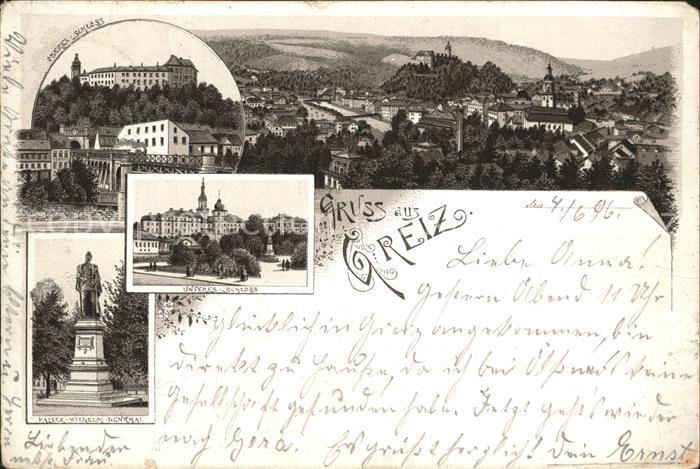 OBERES-SCHLOSS
UNTERES-SCHLOSS
KAISER-WILHELM-DENKMAL
GRUSS aus
GREIZ.
den 4./6 96.
Liebe Anna!
Gestern Abend 11 Uhr
Glücklich in Greiz angekommen, bin
direkt zu Hause, da ich bei keine
Gesellschaft gefunden habe. Jetzt geht's wieder
nach Gera. Es grüßt herzlich! Dein Ernst